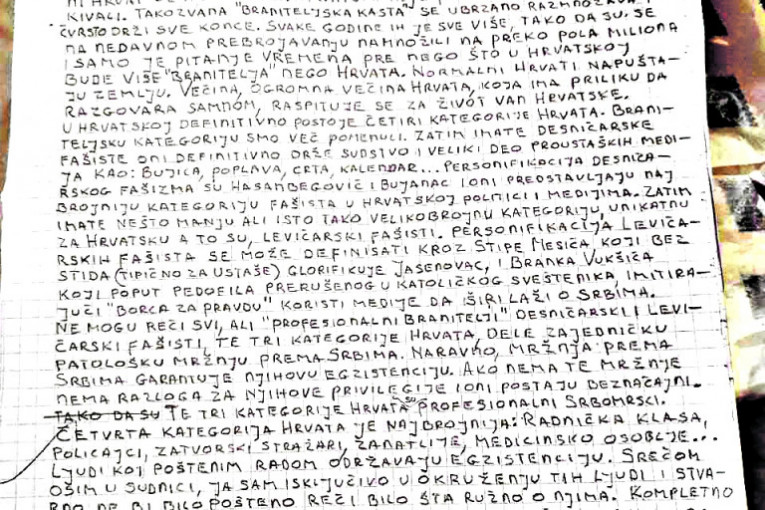 KIVALI. TAKOZVANA "BRANITELJSKA KASTA" SE UBRZANO
ČVRSTO DRŽI SVE KONCE. SVAKE GODINE IH JE SVE VIŠE, TAKO DA SU, SE
NA NEDAVNOM PREBROJAVANJU NAMNOŽILI NA PREKO POLA MILIONA
I SAMO JE PITANJE VREMENA PRE NEGO ŠTO U HRVATSKOJ
BUDE VIŠE "BRANITELJA" NEGO HRVATA. NORMALNI HRVATI NAPUŠTA-
JU ZEMLJU. VEĆINA, OGROMNA VEĆINA HRVATA, KOJA IMA PRILIKU DA
RAZGOVARA SAMNOM, RASPITUJE SE ZA ŽIVOT VAN HRVATSKE.
U HRVATSKOJ DEFINITIVNO POSTOJE ČETIRI KATEGORIJE HRVATA. BRANI-
TELJSKU KATEGORIJU SMO VEČ POMENULI. ZATIM IMATE DESNIČARSKE
FAŠISTE ONI DEFINITIVNO DRŽE SUDSTVO I VELIKI DEO PROUSTAŠKIH MEDI-
JA KAO: BUJICA, POPLAVA, CRTA, KALENDAR... PERSONIFIKACIJA DESNIČA-
RSKOG FAŠIZMA SU HASANBEGOVIČ I BUJANAC I ONI PREDSTAVLJAJU NAJ
BROJNIJU KATEGORIJU FAŠISTA U HRVATSKOJ POLITICI I MEDIJIMA. ZATIM
IMATE NEŠTO MANJU ALI ISTO TAKO VELIKOBROJNU KATEGORIJU, UNIKATNU
ZA HRVATSKU A TO SU, LEVIČARSKI FAŠISTI. PERSONIFIKACIJA LEVIČA-
RSKIH FAŠISTA SE MOŽE DEFINISATI KROZ STIPE MESIĆA, KOJI BEZ
STIDA (TIPIČNO ZA USTAŠE) GLORIFIKUJE JASENOVAC, I BRANKA VUKŠIĆA
KOJI POPUT PEDOFILA PRERUŠENOG U KATOLIČKOG SVEŠTENIKA, IMITIRA-
JUČI "BORCA ZA PRAVDU" KORISTI MEDIJE DA ŠIRI LAŽI O SRBIMA.
NE MOGU REČI SVI, ALI "PROFESIONALNI BRANITELJI" DESNIČARSKI I LEVI-
ČARSKI FAŠISTI, TE TRI KATEGORIJE HRVATA, DELE ZAJEDNIČKU
PATOLOŠKU MRŽNJU PREMA SRBIMA. NARAVNO, MRŽNJA PREMA
SRBIMA GARANTUJE NJIHOVU EGZISTENCIJU. AKO NEMA TE MRŽNJE
NEMA RAZLOGA ZA NJIHOVE PRIVILEGIJE I ONI POSTAJU BEZNAČAJNI.
TAKO DA SU TE TRI KATEGORIJE HRVATA SU PROFESIONALNI SRBOMRSCI.
ČETVRTA KATEGORIJA HRVATA JE NAJBROJNIJA: RADNIČKA KLASA,
POLICAJCI, ZATVORSKI STRAŽARI, ZANATLIJE, MEDICINSKO OSOBLJE...
LJUDI KOJ POŠTENIM RADOM ODRŽAVAJU EGZISTENCIJU. SREČOM
OSIM U SUDNICI, JA SAM ISKLJUČIVO U OKRUŽENJU TIH LJUDI I STVA-
RNO NE BI BILO POŠTENO REČI BILO ŠTA RUŽNO O NJIMA. KOMPLETNO